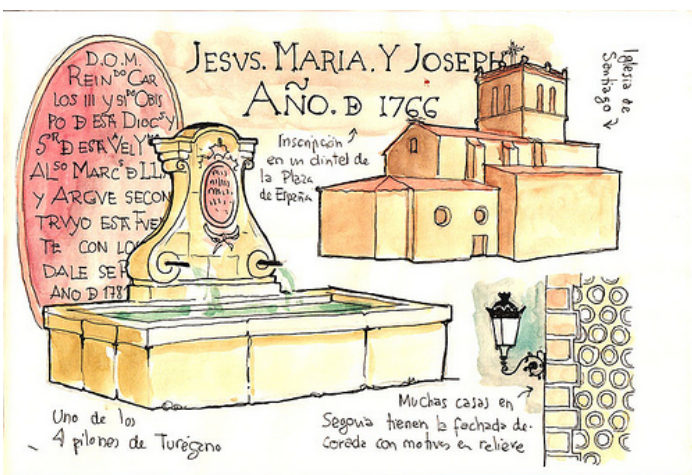 D.O.M.
REINDO CAR
LOS III Y SDO OBIS
PO D ESTA DIOCS Y
SR D ESTA VELY
ALSO MARCS D LL
Y ARGVE SECON
TRVYO ESTA FUEN
TE CON LO
DALE SE
ANO D 178
JESVS. MARIA. Y JOSEPH
AÑO. D 1766
Inscripción
en un dintel de
la Plaza
de España
Iglesia de
Santiago
Uno de los
4 pilones de Turégano
Muchas casas en
Segovia tienen la fachada de-
corada con motivos en relieve